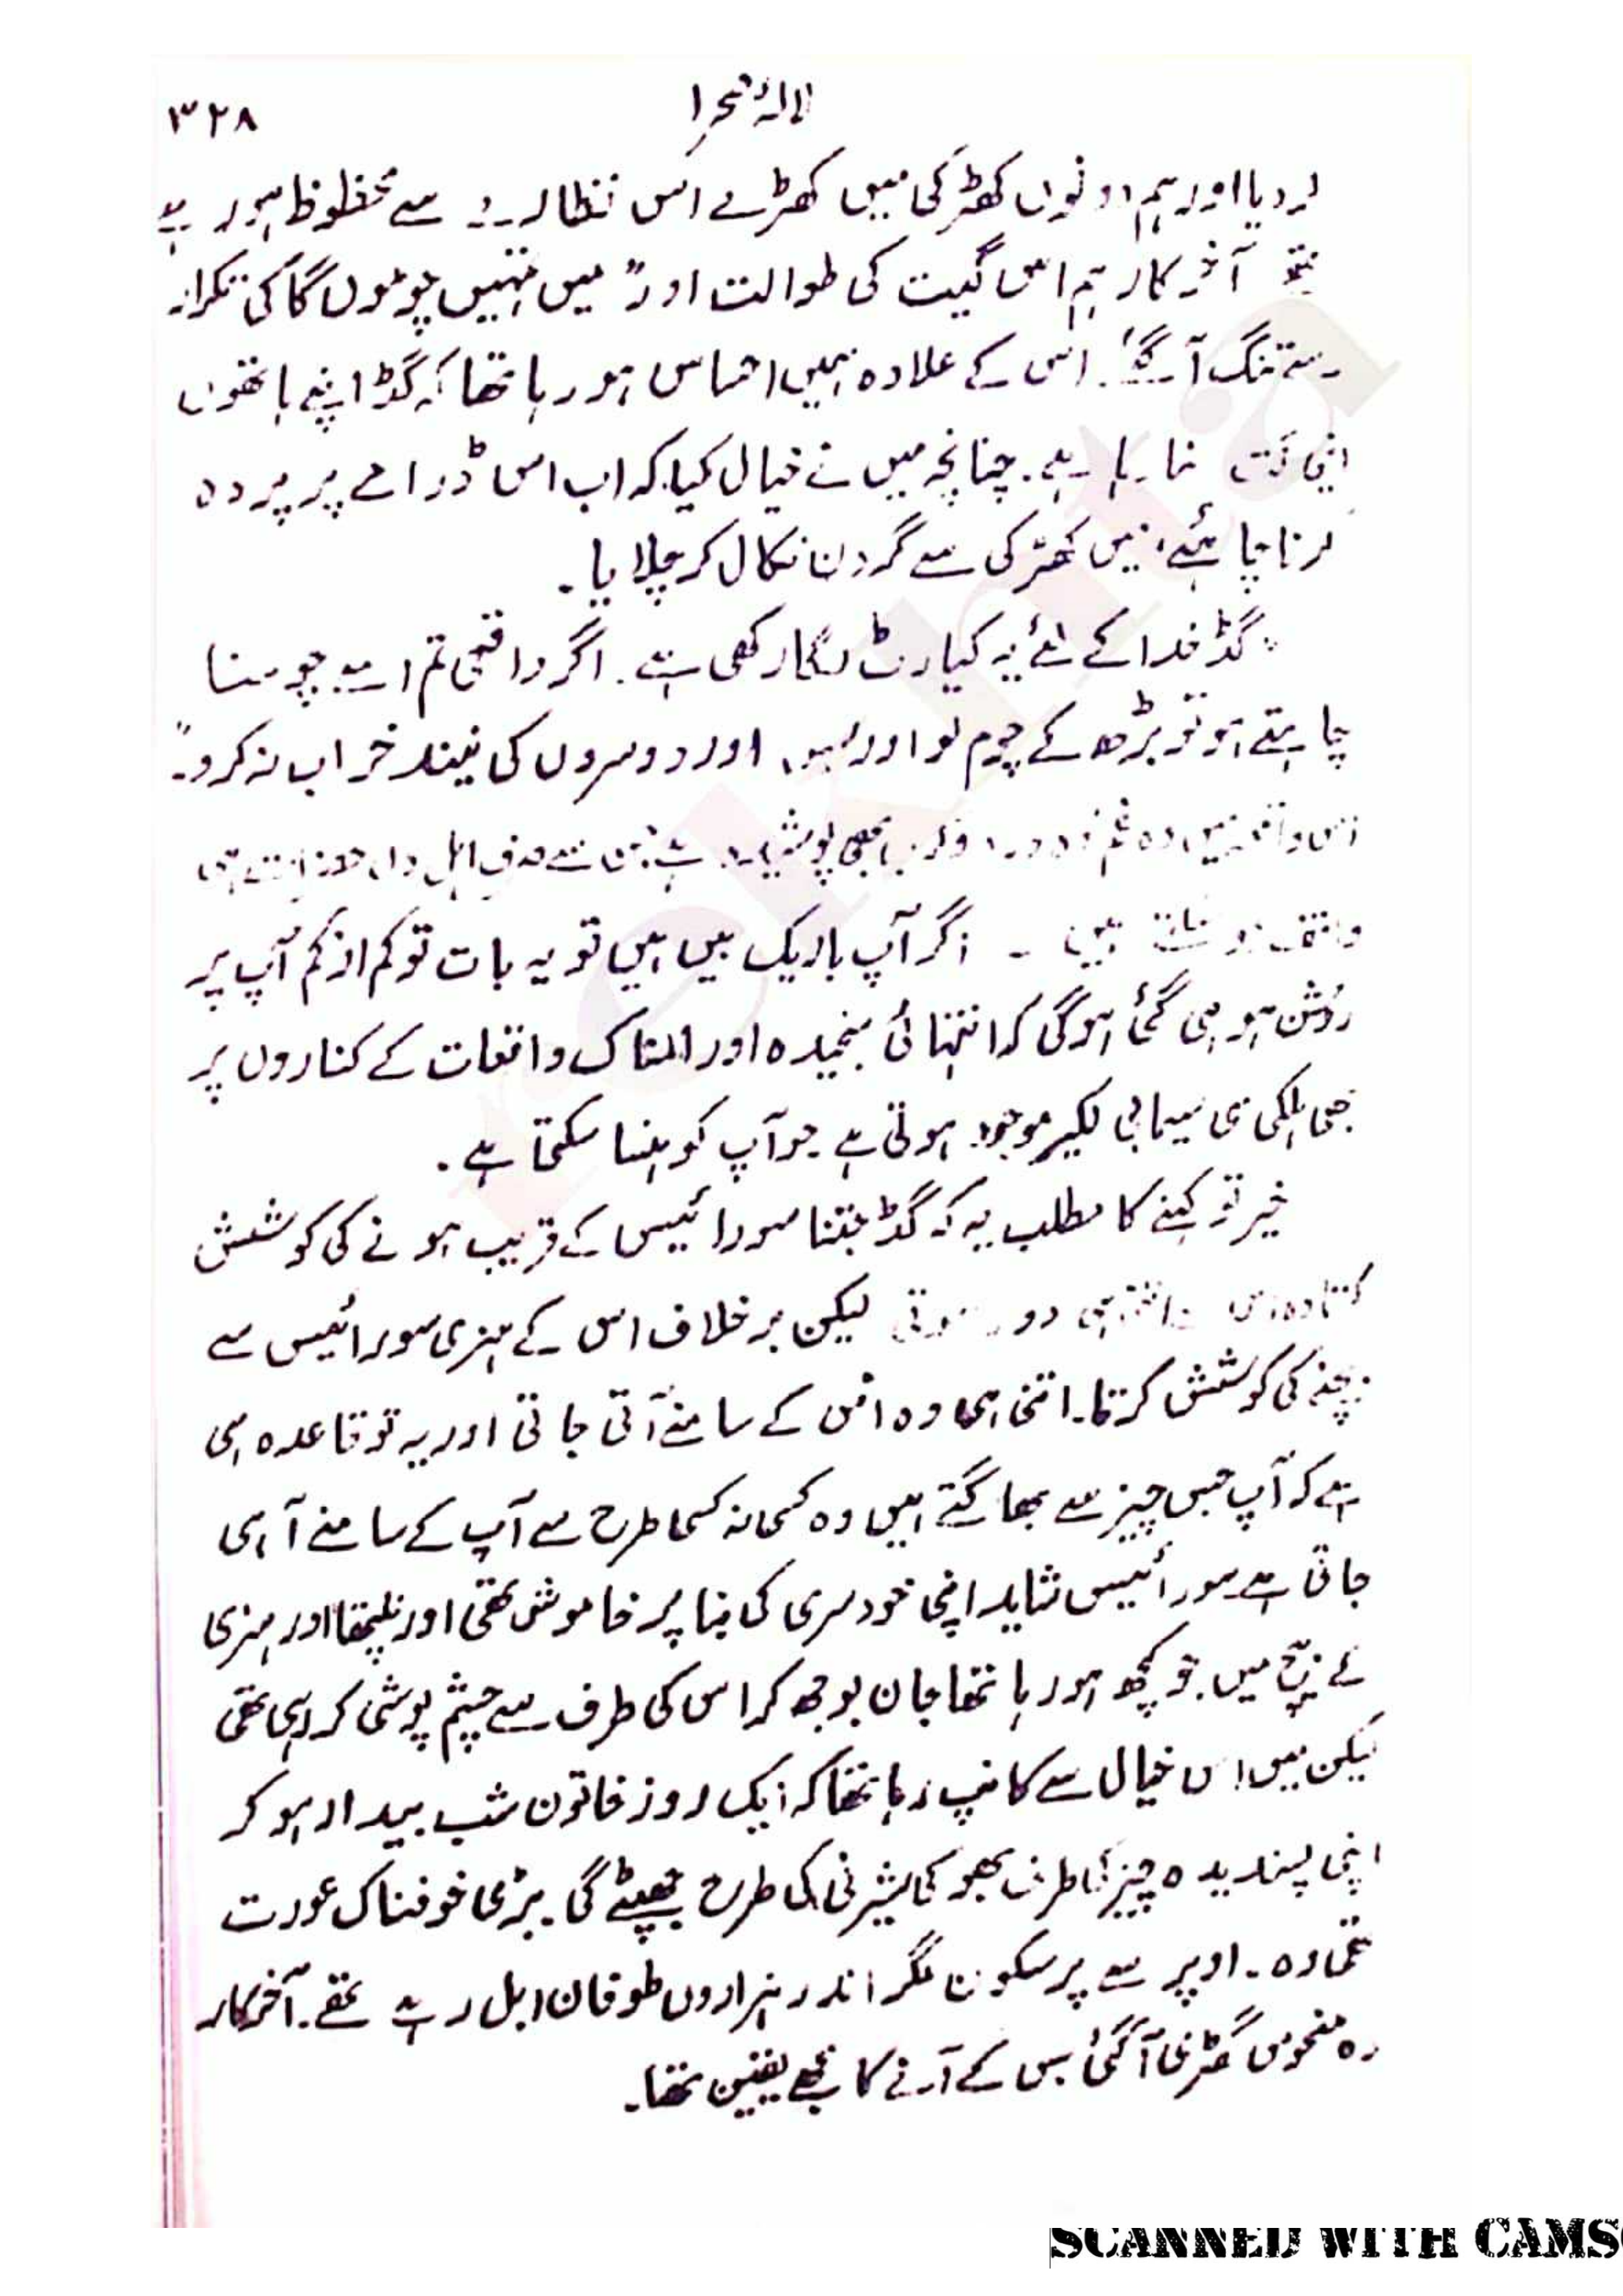 لالۂ صحرا
۳۲۸
کر دیا اور ہم دونوں کھڑکی میں کھڑے اس نظارے سے محظوظ ہو رہے
تھے آخر کار ہم اس گیت کی طوالت اور "میں تمہیں چوموں گا کی تکرار
سے تنگ آ گئے۔ اس کے علاوہ ہمیں احساس ہو رہا تھا کہ گڈ اپنے ہاتھوں
اپنی گت بنا رہا ہے۔ چنانچہ میں نے خیال کیا کہ اب اس ڈرامے پر پردہ
گرنا چاہئے، میں کھڑکی سے گردن نکال کر چلایا۔
"گڈ خدا کے لئے یہ کیا رٹ لگا رکھی ہے۔ اگر واقعی تم اسے چومنا
چاہتے ہو تو بڑھ کے چوم لو اور اور دوسروں کی نیند خراب نہ کرو"۔
اس واقعہ میں وہ بھی پوشیدہ ہے جس سے صرف اہل دل حضرات ہی
واقف ہو سکتے ہیں ۔ اگر آپ باریک بیں ہیں تو یہ بات تو کم از کم آپ پر
روشن ہو ہی گئی ہوگی کہ انتہائی سنجیدہ اور المناک واقعات کے کناروں پر
بھی ہلکی سی سیمابی لکیر موجود ہوتی ہے جو آپ کو ہنسا سکتا ہے۔
خیر تو کہنے کا مطلب یہ کہ گڈ جتنا سورائیس کے قریب ہونے کی کوشش
کرتا وہ اس سے اتنی ہی دور ہوتی لیکن بر خلاف اس کے ہنری سورائیس سے
بچنے کی کوشش کرتا۔ اتنی ہی وہ اس کے سامنے آتی جاتی اور یہ تو قاعدہ ہی
ہے کہ آپ جس چیز سے بھاگتے ہیں وہ کسی نہ کسی طرح سے آپ کے سامنے آ ہی
جاتی ہے سورائیس شاید اپنی خودسری کی بنا پر خاموش تھی اور نلپتھا اور ہنری
کے بیچ میں جو کچھ ہو رہا تھا جان بوجھ کر اس کی طرف سے چشم پوشی کر رہی تھی
لیکن میں اس خیال سے کانپ رہا تھا کہ ایک روز خاتون شب بیدار ہو کر
اپنی پسندیدہ چیز کی طرف بھوکی شیرنی کی طرح جھپٹے گی۔ بڑی خوفناک عورت
تھی وہ۔ اوپر سے پر سکون مگر اندر ہزاروں طوفان ابل رہے تھے۔ آخر کار
وہ منحوس گھڑی آ گئی جس کے آنے کا مجھے یقین تھا۔
SCANNED WITH CAMS
rekhta